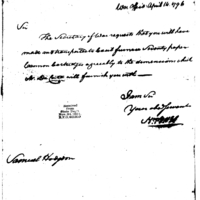 War Office April 14 1796
Sir
The Secretary of War requests that you will have
made and transported to Cecil furnace Seventy paper
Cannon Cartridges agreeably to the dimensions which
Mr. will furnish you with
I am Sir
Your obt Servant
Samuel Hodgdon